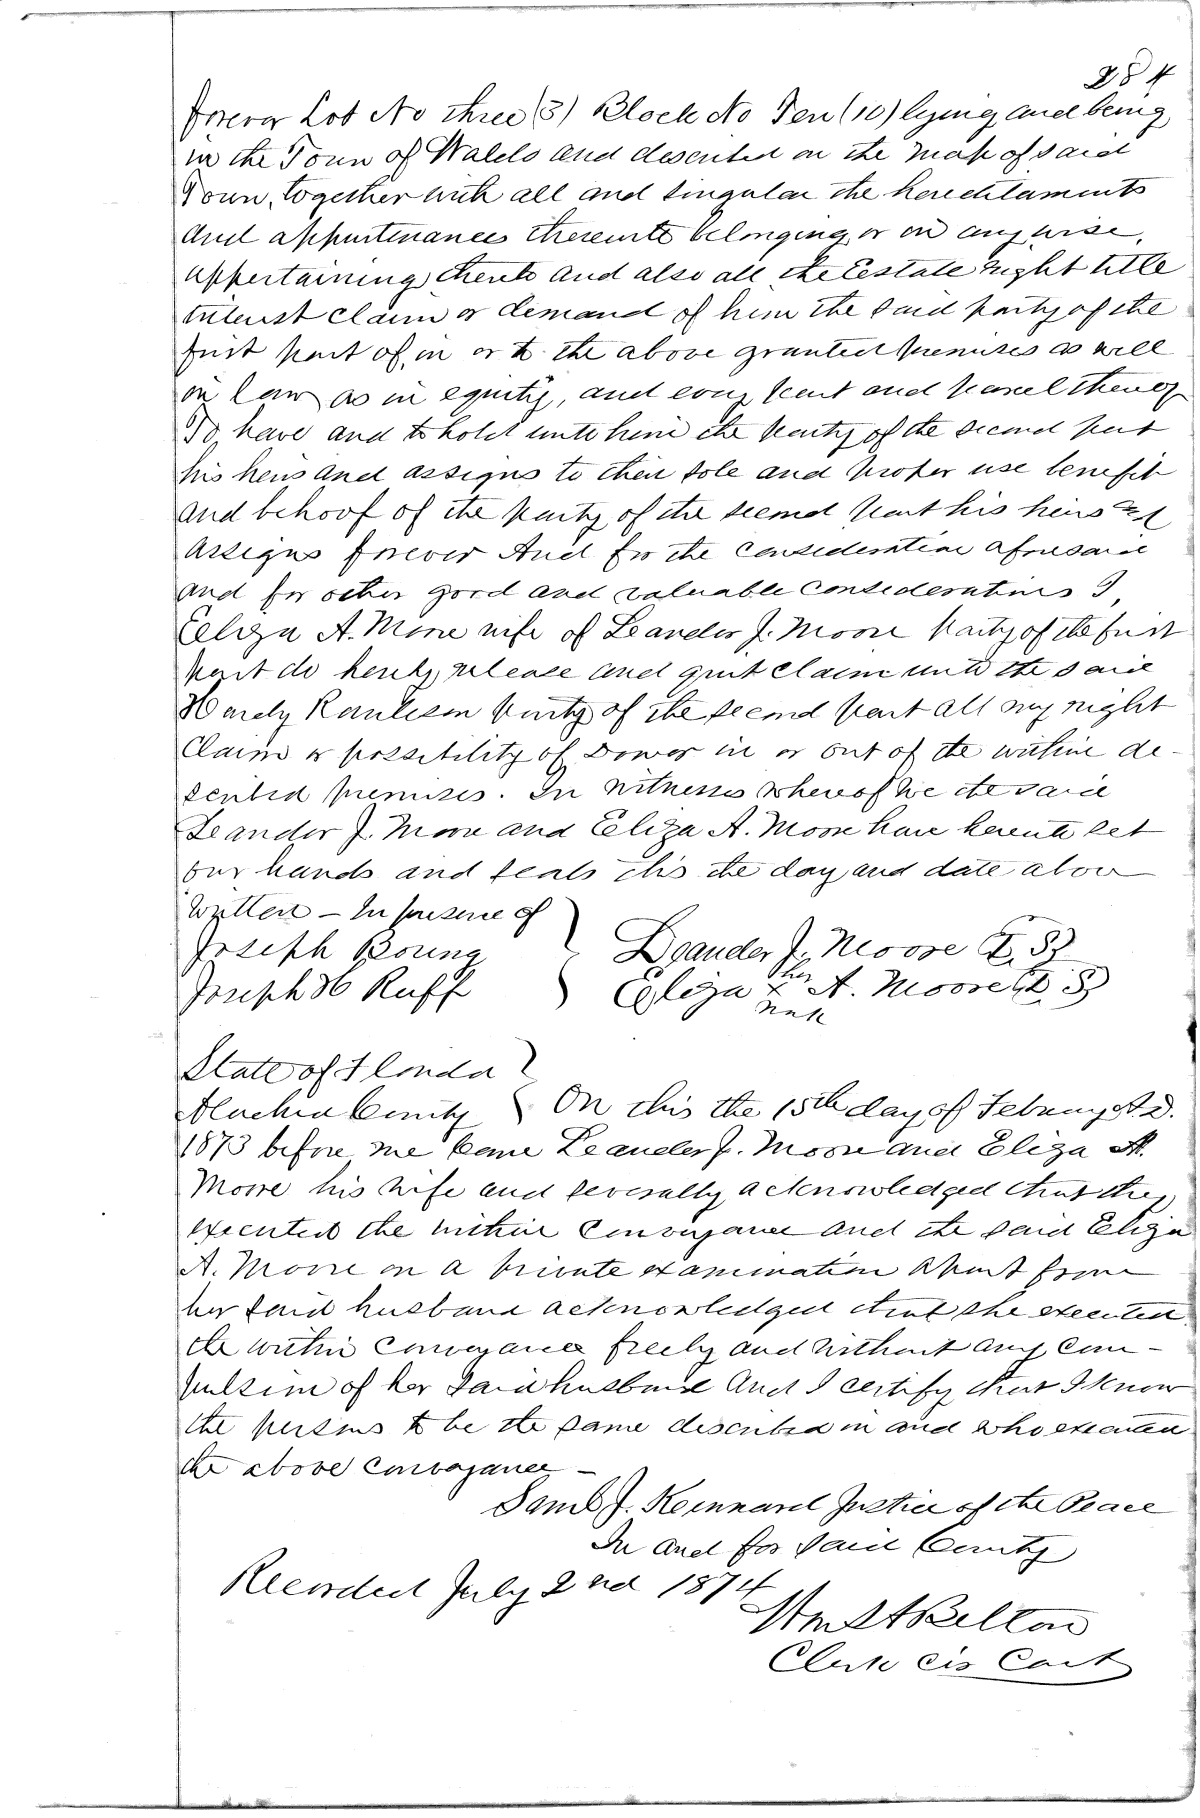 284
forever Lot No three (3) Block No Ten (10) lying and being
in the Town of Waldo and described on the map of said
Town, together with all and singular the hereditaments
and appurtenances thereunto belonging or in any wise,
appertaining thereto and also all the Estate right title
interest claim or demand of him the said party of the
first part of, in or to the above granted premises as well
in law as in equity, and every part and parcel thereof
To have and to hold unto him the party of the second part
his heirs and assigns to their sole and proper use benefit
and behoof of the party of the second part his heirs and
assigns forever And for the consideration aforesaid
and for other good and valuable considerations I,
Eliza A. Moore wife of Leander J. Moore party of the first
part do hereby release and quit claim unto the said
Hardy Raulison party of the second part all my right
Claim or possibility of Dower in or out of the within de-
scribed premises. In witness whereof We the said
Leander J. Moore and Eliza A. Moore have hereunto set
our hands and seals this the day and date above
written – In presence of
Joseph Boring } Leander J. Moore (L. S)
Joseph H Ruff } Eliza her x mark A. Moore (L. S)
State of Florida }
Alachua County { On this the 15th day of Febuary A.D.
1873 before me Came Leander J. Moore and Eliza A.
Moore his wife and severally acknowledged that they
executed the within Conveyance and the said Eliza
A. Moore on a private examination apart from
her said husband acknowledged that she executed
the within Conveyance freely and without any com-
pulsion of her said husband And I certify that I know
the persons to be the same described in and who executed
the above Conveyance –
Saml J. Kennard Justice of the Peace
In and for said County
Recorded July 2nd 1874
Wm S A Belton
Clerk Cir Court